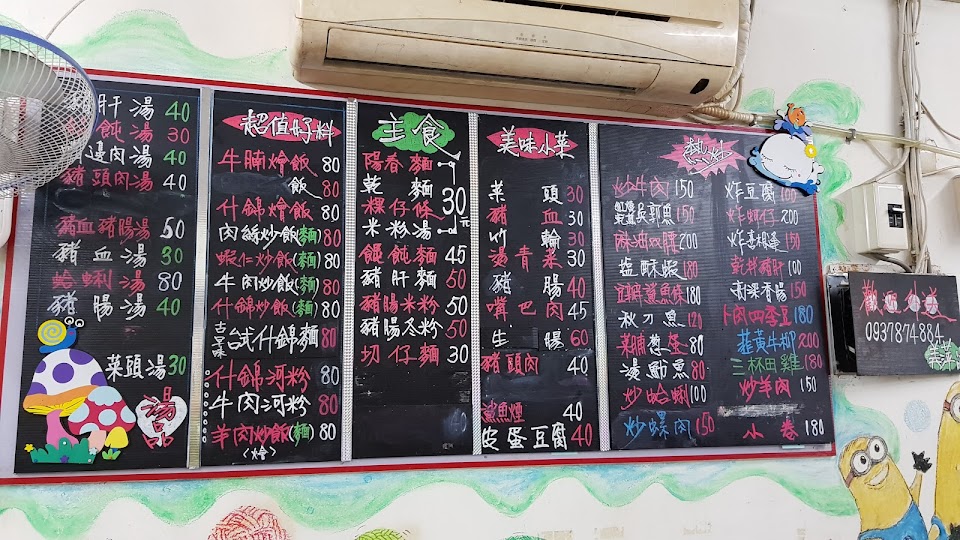 肝湯 40
飩湯 30
邊肉湯 40
豬頭肉湯 40
豬血豬腸湯 50
豬血湯 30
蛤蜊湯 80
豬腸湯 40
菜頭湯 30
湯品
超值好料
牛腩燴飯 80
飯 80
什錦燴飯 80
肉絲炒飯(麵) 80
蝦仁炒飯(麵) 80
牛肉炒飯(麵) 80
什錦炒飯(麵) 80
古早味台式什錦麵 80
什錦河粉 80
牛肉河粉 80
羊肉炒飯(麵) 80
(燴)
主食
陽春麵
乾麵
粿仔條
米粉湯
30元
餛飩麵 45
豬肝麵 50
豬腸米粉 50
豬腸冬粉 50
切仔麵 30
美味小菜
菜頭 30
豬血 30
竹輪 30
燙青菜 30
豬腸 40
嘴巴肉 45
生腸 60
豬頭肉 40
鯊魚煙 40
皮蛋豆腐 40
熱炒
炒牛肉 150
吳郭魚 150
麻油双腰 200
塩酥蝦 180
宜蘭鯊魚條 180
秋刀魚 120
菜脯蔥蛋 80
燙魩魚 80
炒蛤蜊 100
炒螺肉 150
炸豆腐 100
炸蚵仔 200
乾煎豬肝 150
香腸 150
卜肉四季豆 180
韮黃牛柳 200
三杯田雞 180
炒羊肉 150
小卷 180
歡迎外送
0937874884